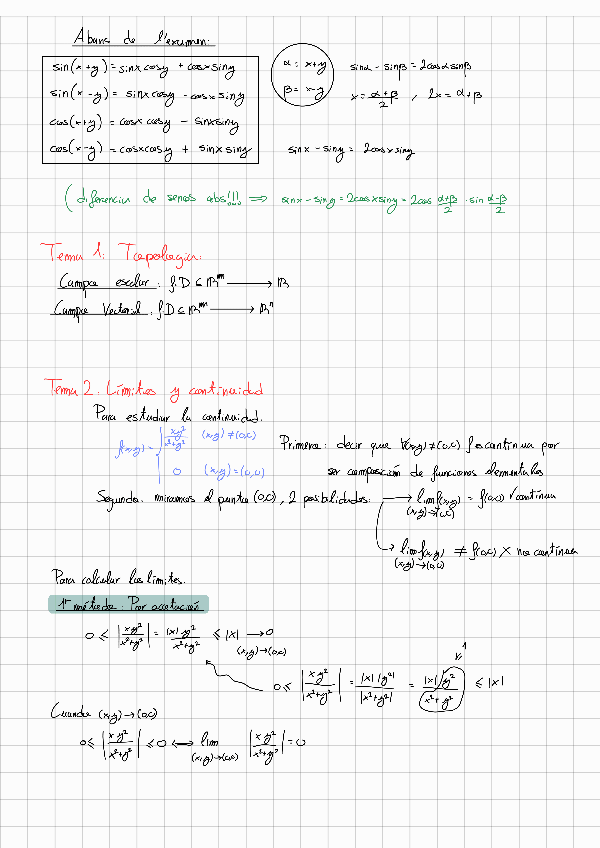 Abans de l'examen:
sin(x+y) = sinx cosy + cosx siny
sin(x-y) = sinx cosy - cosx siny
cos(x+y) = cosx cosy - sinx siny
cos(x-y) = cosx cosy + sinx siny
α = x+y
β = x-y
sinα - sinβ = 2cosα sinβ
x = α+β / 2 , 2x = α+β
sinx - siny = 2cosx siny
(diferencia de senos abs!!! ⟹ sinx - siny = 2cosx siny = 2cos α+β/2 · sin α-β/2
Tema 1: Topologia:
Campo escalar: f: D ⊆ ℝᵐ ⟶ ℝ
Campo Vectorial: f: D ⊆ ℝᵐ ⟶ ℝⁿ
Tema 2: Límites y continuidad
Para estudiar la continuidad.
f(x,y) = { xy²/x²+y² (x,y) ≠ (0,0)
0 (x,y) = (0,0)
Primero: decir que ∀(x,y) ≠ (0,0) f es continua por
ser composición de funciones elementales
Segundo: miramos el punto (0,0), 2 posibilidades: → lim f(x,y) = f(0,0) ✓ continua
(x,y)→(0,0)
↳ lim f(x,y) ≠ f(0,0) ✗ no continua
(x,y)→(0,0)
Para calcular los límites.
1er método: Por acotación
0 ≤ |xy²/x²+y²| = |x| y²/x²+y² ≤ |x| → 0
(x,y)→(0,0)
1
0 ≤ |xy²/x²+y²| = |x| |y²|/|x²+y²| = |x| y²/x²+y² ≤ |x|
Cuando (x,y) → (0,0)
0 ≤ |xy²/x²+y²| ≤ 0 ⟺ lim |xy²/x²+y²| = 0
(x,y)→(0,0)